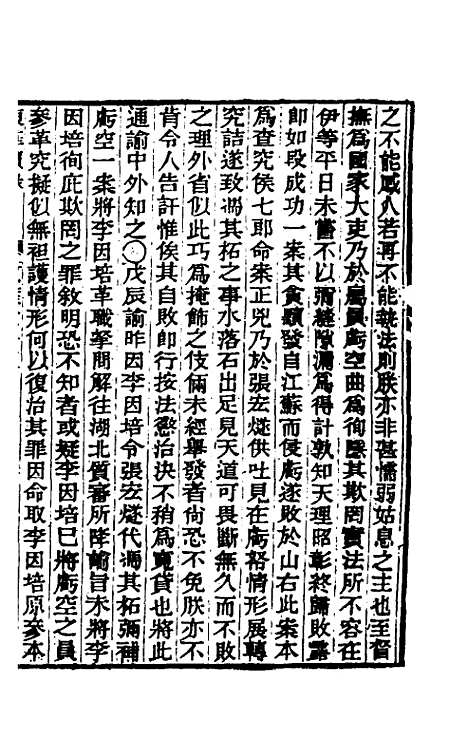 之不能感人若再不能執法則朕亦非甚懦弱姑息之主也至督
撫為國家大吏乃於屬員虧空曲為徇隱其欺罔實法所不容在
伊等平日未嘗不以彌縫隙漏為得計孰知天理昭彰終歸敗露
即如段成功一案其貪贓發自江蘇而侵虧遂敗於山右此案本
為查究侯七郎命案正兇乃於張宏燧供吐見在虧帑情形展轉
究詰遂致馮其柘之事水落石出足見天道可畏斷無久而不敗
之理外省似此巧為掩飾之伎倆未經舉發者尚恐不免朕亦不
肯令人告訐惟俟其自敗即行按法懲治決不稍為寬貸也將此
通諭中外知之〇戊辰諭昨因李因培令張宏燧代馮其柘彌補
虧空一案將李因培革職拏問解往湖北質審所降諭旨未將李
因培徇庇欺罔之罪敘明恐不知者或疑李因培已將虧空之員
參革究擬似無袒護情形何以復治其罪因命取李因培原參本